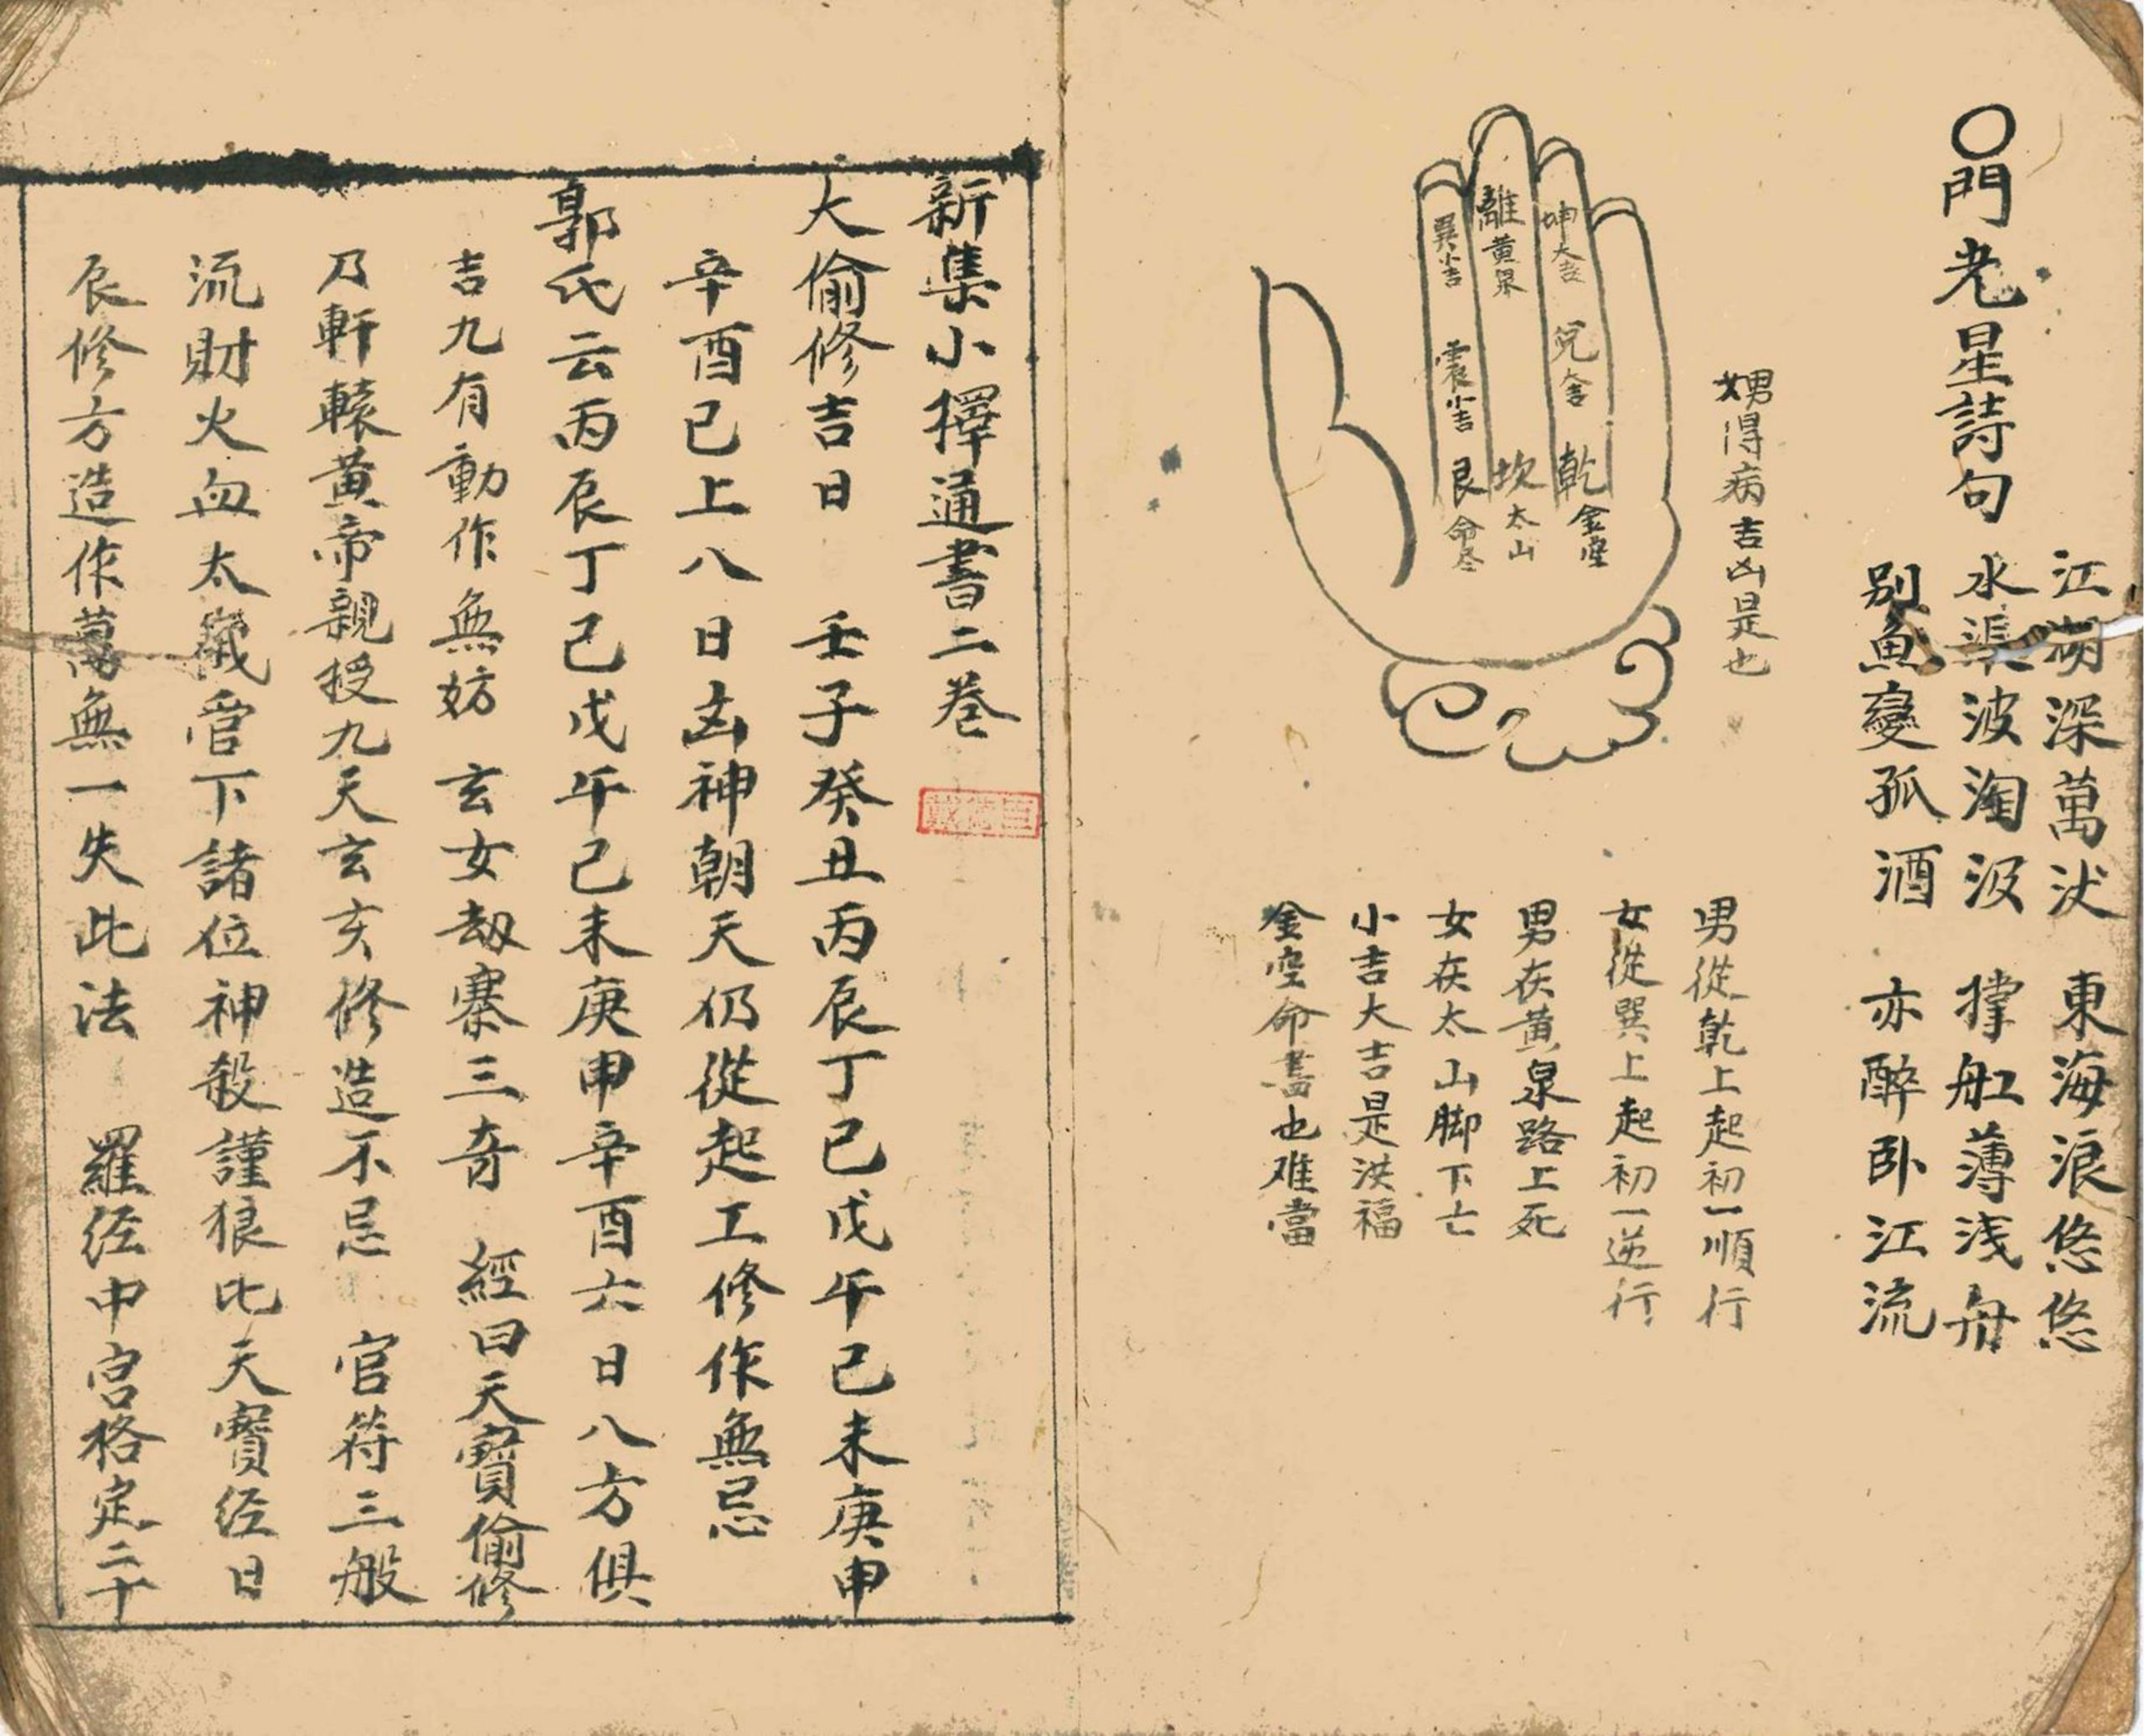 〇門光星詩句
江湖深萬状 東海浪悠悠
水渠波淘汲 撑舡薄浅舟
别魚變孤酒 亦醉卧江流
男女得病吉凶是也
巽小吉
離黄泉
坤大吉
震小吉
兌大吉
艮命尽
坎太山
乾金空
男從乾上起初一順行
女從巽上起初一逆行
男在黄泉路上死
女在太山脚下亡
小吉大吉是洪福
金空命盡也难當
新集小擇通書二卷
大偷修吉日 壬子癸丑丙辰丁巳戊午己未庚申
辛酉已上八日凶神朝天仍從起工修作無忌
郭氏云丙辰丁己戊午己未庚申辛酉六日八方俱
吉九有動作無妨 玄女劫寨三奇 經曰天寶偷修
乃軒轅黄帝親授九天玄女修造不忌 官符三般
流財火血太歲管下諸位神殺謹狼比天寶经日
辰修方造作萬無一失此法 羅经中宫格定二十